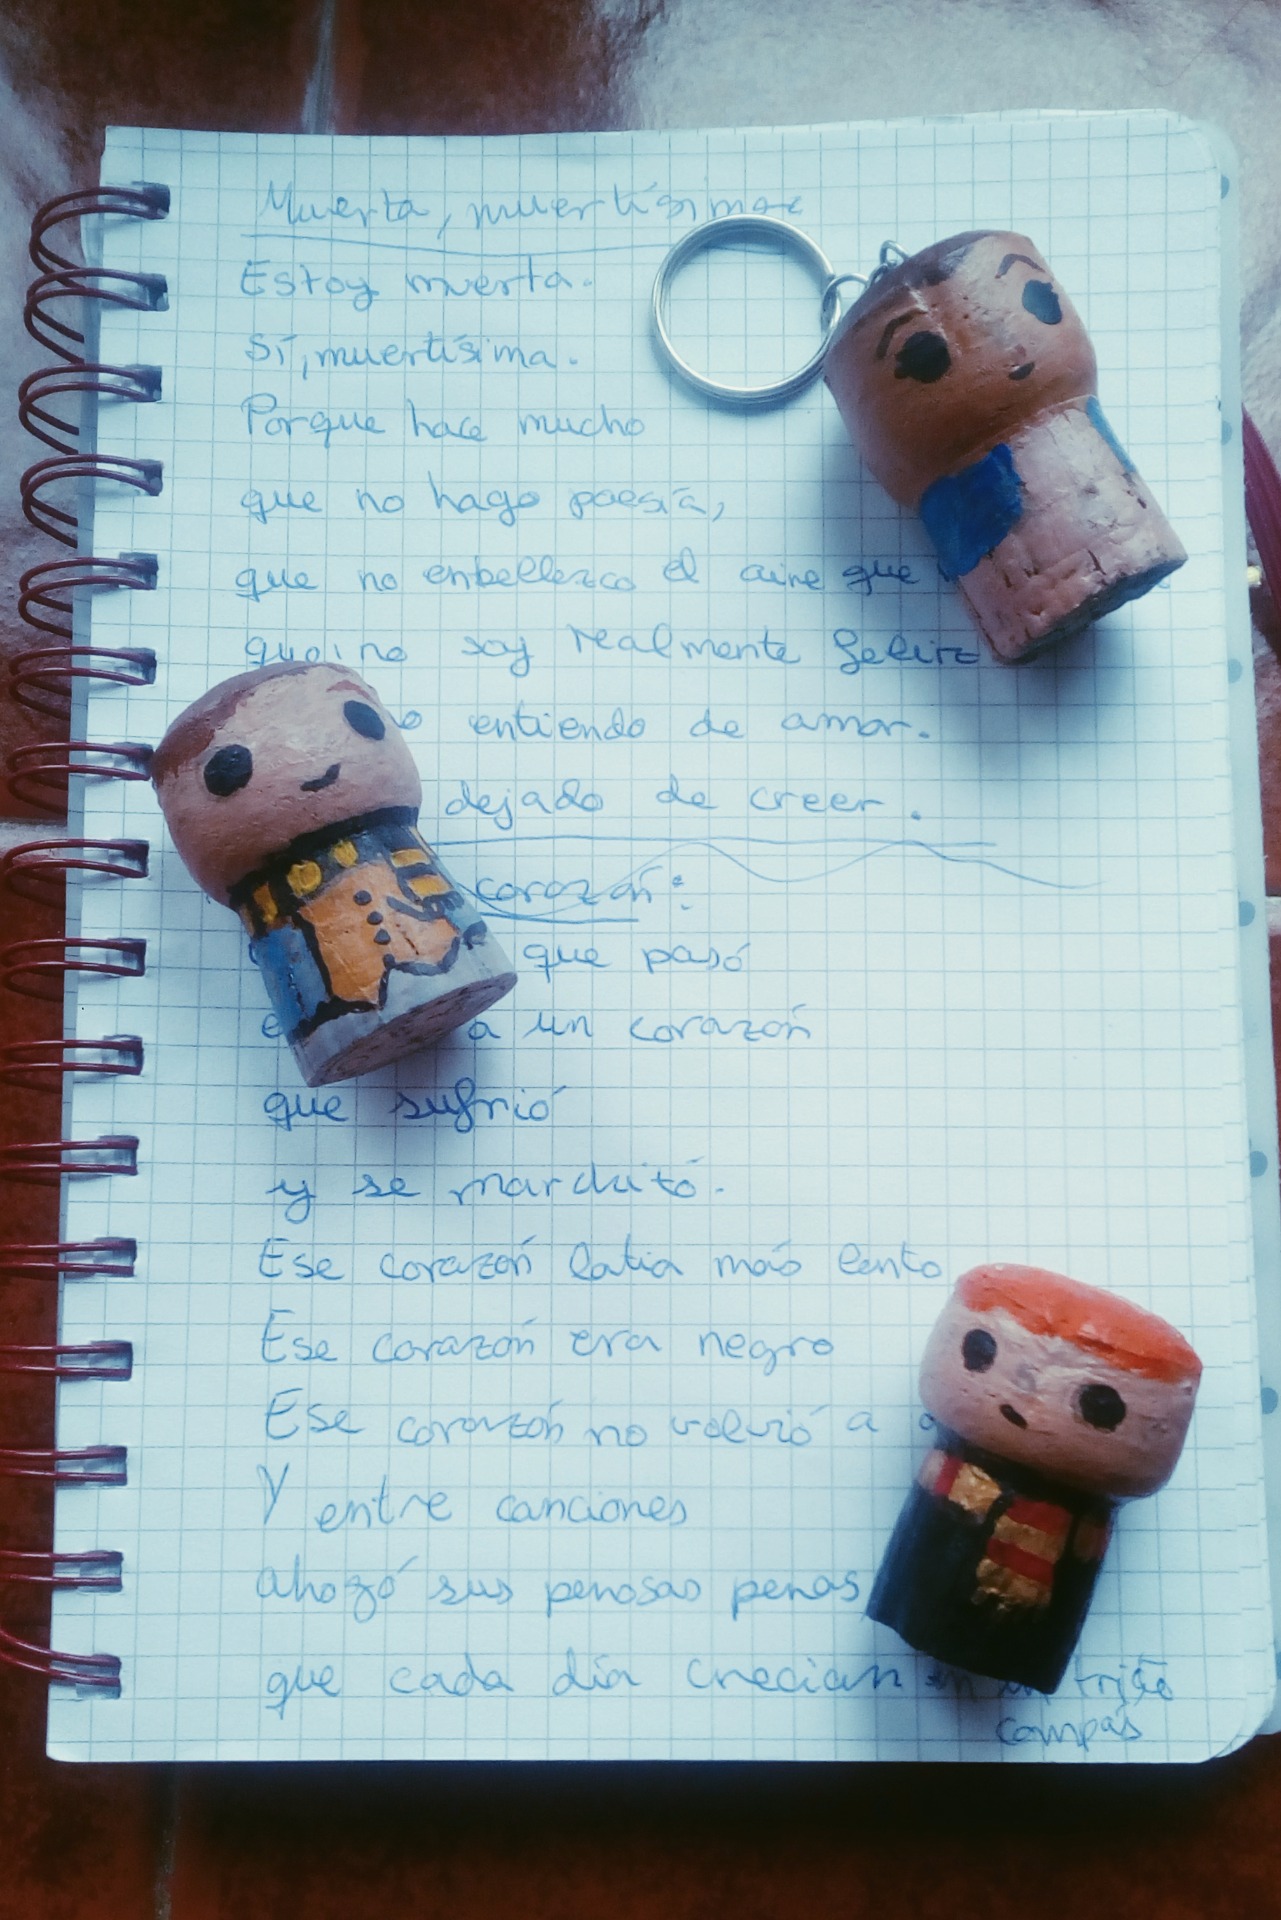 Muerta, muertísima
Estoy muerta.
Sí, muertísima.
Porque hace mucho
que no hago poesía,
que no embellezco el aire que
que no soy realmente feliz
entiendo de amar.
dejado de creer.
corazón:
que pasó
a un corazón
que sufrió
y se marchitó.
Ese corazón latia más lento
Ese corazón era negro
Ese corazón no volvió a
Y entre canciones
ahogó sus penosas penas
que cada día crecian
compás